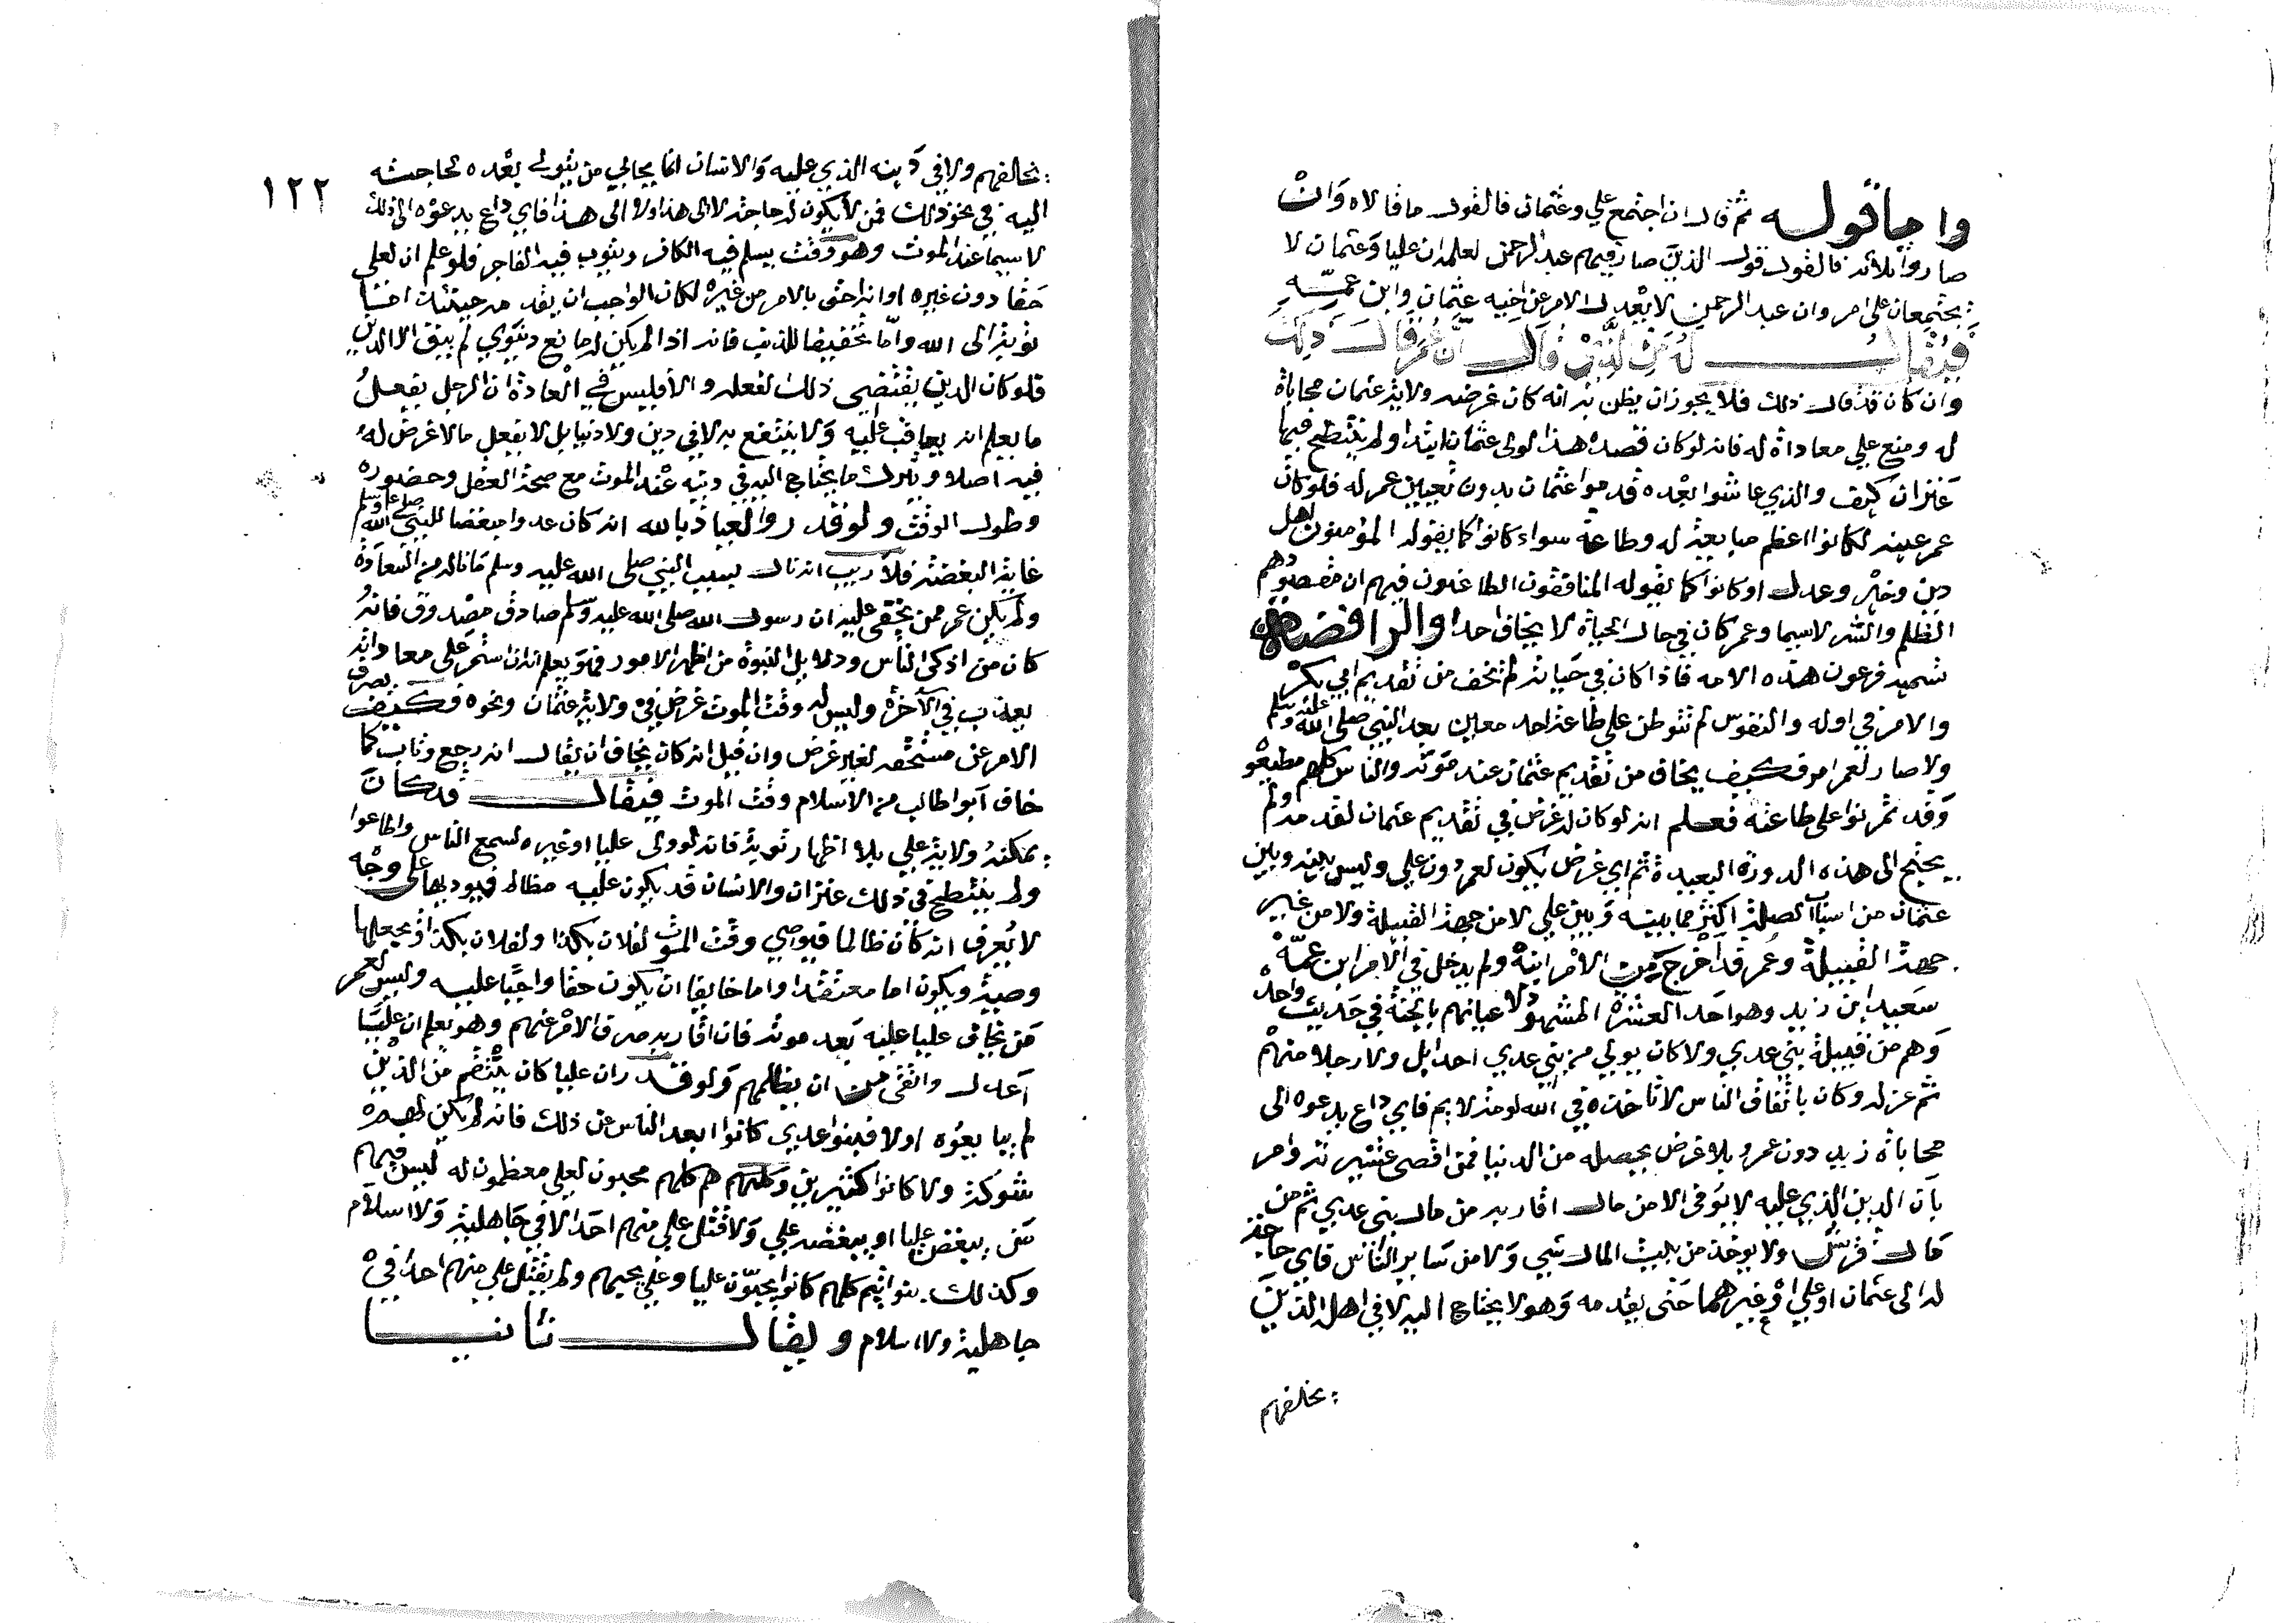 واما قوله ثم قال ان اجتمع علي وعثمان فالقول ما قالاه وان
صاروا ثلاثه فالقول قول الذين صار فيهم عبد الرحمن لعلمه ان عليا وعثمان لا
يجتمعان على امر وان عبد الرحمن لا يعدل الامر عن اخيه عثمان وابن عمه
فيقال له من الذي قال ان عمر قال ذلك
وان كان قد قال ذلك فلا يجوز ان يظن به انه كان غرضه ولاية عثمان محاباة
له ومنع علي معاداة له فانه لو كان قصده هذا لولى عثمان ابتدا ولم ينتطح فيها
عنزان كيف والذي عاشوا بعده قدموا عثمان بدون تعيين عمر له فلو كان
عمر عينه لكانوا اعظم مبايعة له وطاعة سواء كانوا كما يقوله المؤمنون اهل
دين وخير وعدل او كانوا كما يقوله المنافقون الطاعنون فيهم ان مقصودهم
الظلم والشر لاسيما وعمر كان في حال الحياة لا يخاف احدا والرافضة
تسميه فرعون هذه الامه فاذا كان في حياته لم يخف من تقديم ابي بكر
والامر في اوله والنفوس لم تتوطن على طاعة احد معين بعد النبي صلى الله عليه وسلم
ولا صار لعمر امر فكيف يخاف من تقديم عثمان عند موته والناس كلهم مطيعو
وقد تمرنوا على طاعته فعلم انه لو كان له غرض في تقديم عثمان لقدمه ولم
يحتج الى هذه الدورة البعيدة ثم اي غرض يكون لعمر دون علي وليس بينه وبين
عثمان من اسباب الصلة اكثر مما بينه وبين علي لا من جهة القبيلة ولا من غير
جهة القبيلة وعمر قد اخرج من الامر ابنه ولم يدخل في الامر ابن عمه
سعيد ابن زيد وهو احد العشرة المشهود لاعيانهم بالجنة في حديث واحد
وهم من قبيلة بني عدي ولا كان يولي من بني عدي احدا بل ولى رجلا منهم
ثم عزله وكان باتفاق الناس لا تاخذه في الله لومة لايم فاي داع يدعوه الى
محاباة زيد دون عمرو بلا غرض يحصله من الدنيا فمن اقصى عشيرته وامر
بان الدين الذي عليه لا يوفى الا من مال اقاربه من مال بني عدي ثم من
مال قريش ولا يوخذ من بيت المال شي ولا من ساير الناس فاي حاجة
له الى عثمان او علي او غيرهما حتى يقدمه وهو لا يحتاج اليه لا في اهله الذين
يخلفهم
١٢٢
يخالفهم ولا في دينه الذي عليه والانسان انما يحابي من يتولى بعده لحاجته
اليه في نحو ذلك فمن لا يكون له حاجة لا الى هذا ولا الى هذا فاي داع يدعوه الى ذلك
لا سيما عند الموت وهو وقت يسلم فيه الكافر ويتوب فيه الفاجر فلو علم ان لعلي
حقا دون غيره او انه احق بالامر من غيره لكان الواجب ان يقدمه حينئذ اما
توبة الى الله واما تخفيفا للذنب فانه اذا لم يكن له مانع دنيوي لم يبق الا الدين
فلو كان الدين يقتضي ذلك لفعله والا فليس في العادة ان الرجل يفعل
ما يعلم انه يعاقب عليه ولا ينتفع به لا في دين ولا دنيا بل لا يفعل ما لا غرض له
فيه اصلا ويترك ما يحتاج اليه في دينه عند الموت مع صحة العقل وحضوره
وطول الوقت ولو قدر والعياذ بالله انه كان عدوا مبغضا للنبي صلى الله عليه وسلم
غاية البغضة فلا ريب انه نال بسبب النبي صلى الله عليه وسلم ما ناله من السعادة
ولم يكن عمر ممن يخفى عليه ان رسول الله صلى الله عليه وسلم صادق مصدوق فانه
كان من اذكى الناس ودلايل النبوة من اظهر الامور فهو يعلم انه ان استمر على معاداته
يعذب في الآخرة وليس له وقت الموت غرض في ولاية عثمان ونحوه فكيف يصرف
الامر عن مستحقه لغير غرض وان قيل انه كان يخاف ان يقال انه رجع وتاب كما
خاف ابوا طالب من الاسلام وقت الموت فيقال قد كان
يمكنه ولاية علي بلا اظهار توبة فانه لو ولى عليا او غيره لسمع الناس واطاعوا
ولم ينتطح في ذلك عنزان والانسان قد يكون عليه مظالم فيوديها على وجه
لا يعرف انه كان ظالما فيوصي وقت الموت لفلان بكذا ولفلان بكذا او يجعلها
وصية ويكون اما معتقدا واما خايفا ان يكون حقا واجبا عليه وليس لعمر
من يخاف عليا عليه بعد موته فان اقاربه صرف الامر عنهم وهو يعلم ان عليا
اعدل واتقى من ان يظلمهم ولو قدر ان عليا كان ينتقم من الذين
لم يبايعوه اولا فبنوا عدي كانوا ابعد الناس عن ذلك فانه لم يكن لهم
شوكة ولا كانوا كثيرين وكلهم هم كلهم محبون لعلي معظمون له ليس فيهم
من يبغض عليا او يبغضه علي ولا قتل علي منهم احدا لا في جاهلية ولا اسلام
وكذلك بنوا تيم كلهم كانوا يحبون عليا وعلي يحبهم ولم يقتل علي منهم احدا في
جاهلية ولا اسلام ويقال ثانيا